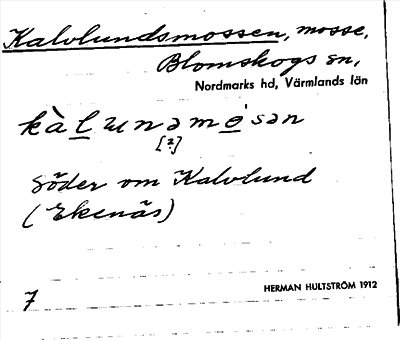 Kalvlundsmossen, mosse,
Blomskogs sn,
Nordmarks hd, Värmlands län
kàlɯnəmésən
[?]
söder om Kalvlund
(Ekenäs)
7
HERMAN HULTSTRÖM 1912